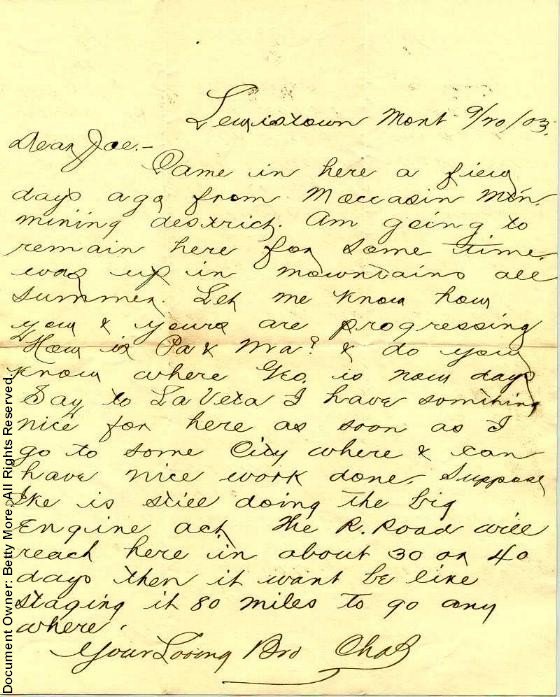 Lewistown Mont 9/20/03.
Dear Joe.-
Came in here a fiew
days ago from Moccasin Mtn.
mining destrict. Am going to
remain here for some time.
was up in mountains all
summer. Let me know how
you & yours are progressing
How is Pa & Ma? & do you
know where Geo. is now days
Say to LaVeta I have somthing
nice for here as soon as I
go to some City where I can
have nice work done. Suppose
Ike is still doing the big
Engine act. The R. Road will
reach here in about 30 or 40
days then it want be like
staging it 80 miles to go any
where.
Your Loving Bro Chas
Document Owner: Betty More. All Rights Reserved.